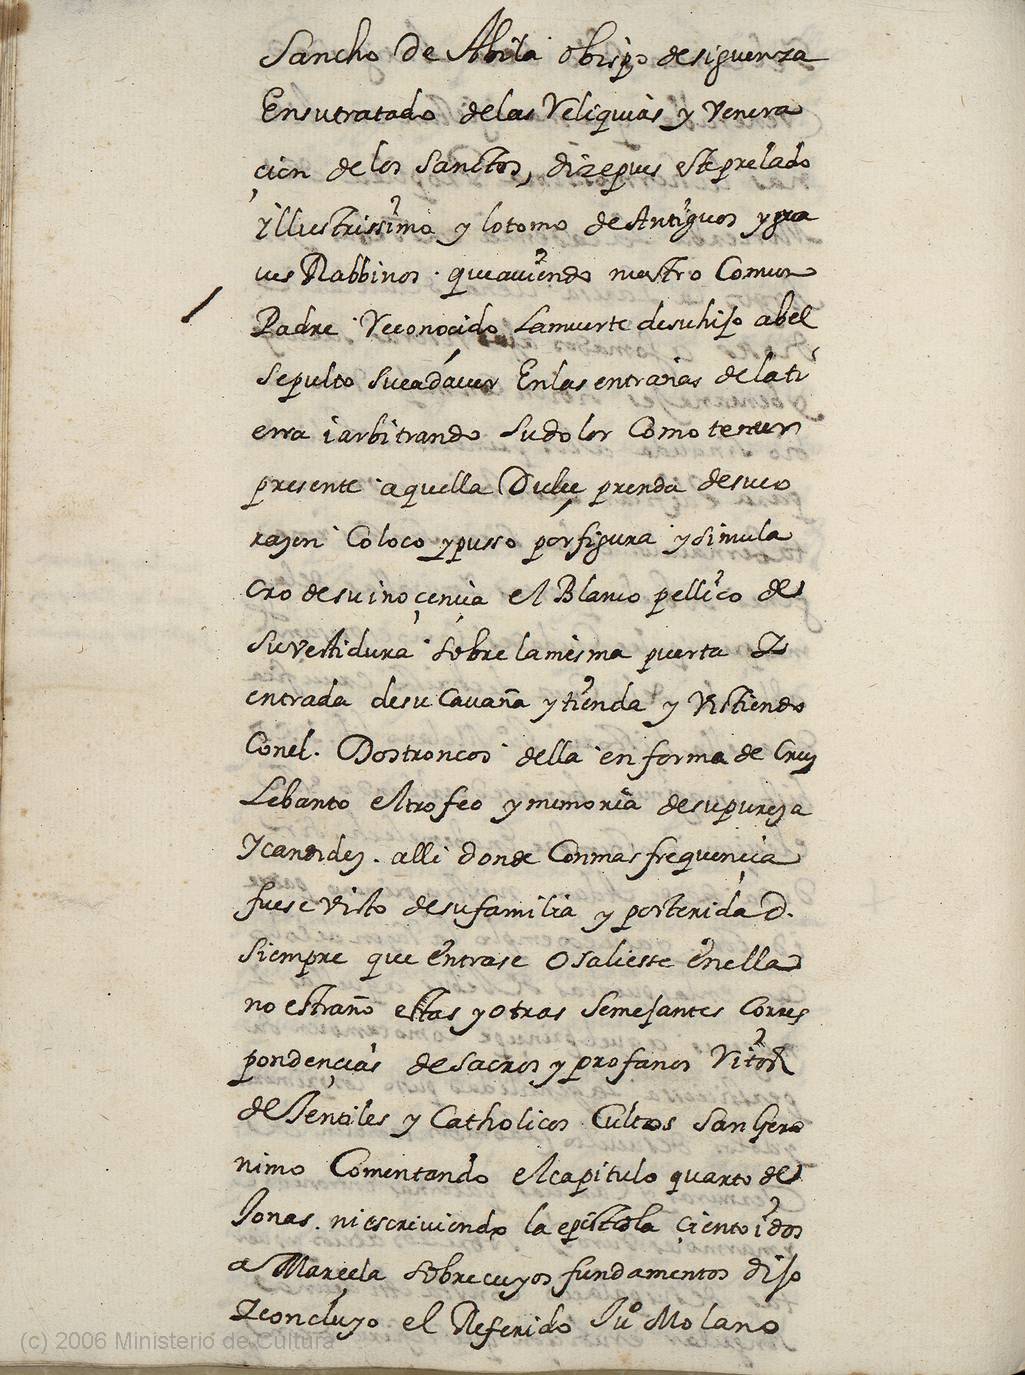 Sancho de Abila obispo desiguenza
Ensutratado delas Reliquias y Venera
çion delos Sanctos, dizepues esteprelado
yllustrissimo y lotomo deAntiguos ygra
ues Rabbinos . queauiendo nuestro Comun
Padre Reconocido Lamuerte desuhijo abel
sepulto sucadáuer Enlas entrañas delati
erra iarbitrando sudolor Como tener
presente aquella Dulce prenda desuco
razon Coloco ypusso porfigura ysimula
cro desuinoçençia el Blanco pellico de
suvestidura sobre lamisma puerta I
entrada desu Cauaña ytienda y Vistiendo
Conel . Dostroncos della enforma de Cruz
Lebanto eltrofeo ymemoria desupureza
Ycandidez . alli donde Conmasfrequençia
fuese visto desufamilia y posterida D.
siempre que entrase osaliesse enella
no estraño estas yotras semejantes Corres
pondençias desacros yprofanos Ritos
deJentiles y Catholicos Cultos SanGero
nimo Comentando elcapitulo quarto de
Jonas . niescriviendo la epistola çientoidos
a Marcela sobrecuyos fundamentos dijo
Iconcluyo el Referido Juº Molano
(c) 2006 Ministerio de Cultura